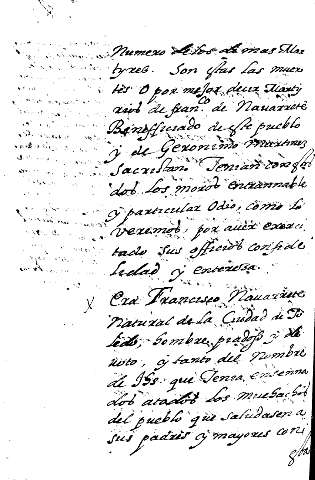 Numero de los demas Mar-
tyres. Son estas las muer-
tes o por mejor decir Marty
rios de fran.co de Navarrete
Beneffiçiado de este pueblo
y de Geronimo Martinez
Sacristano Tenian
dos los moros entrannable
y particular Odio, como lo
veremos, por aver exerci-
tado sus officios con fide
lidad y entereza.
Era Francisco Navarrete
Natural de la Ciudad de To
ledo, hombre piadoso y de
voto, y tanto del Nombre
de Ihs. que Tenia ensenna
dos a todos los muchachos
del pueblo que saludasen a
sus padres y mayores con